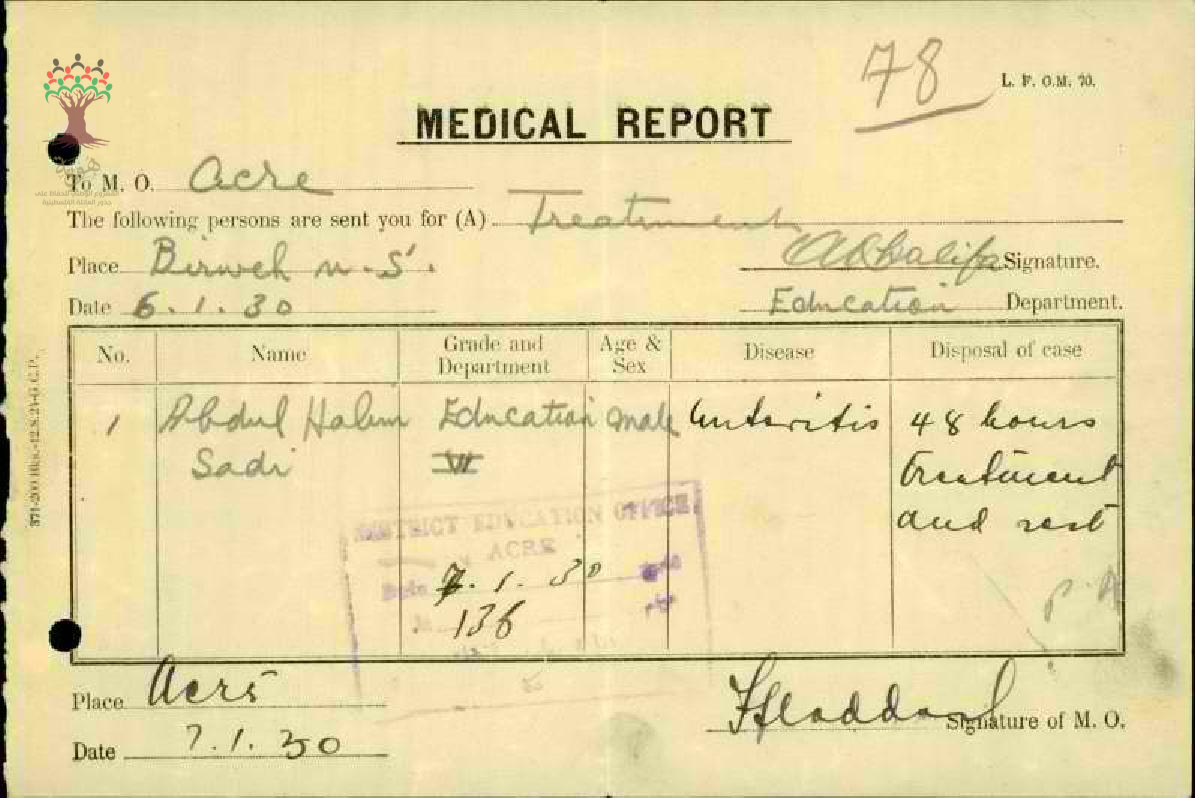 78
L. F. O.M. 70.
MEDICAL REPORT
To M. O. Acre
The following persons are sent you for (A) Treatment
Place Birweh n. S.
Signature.
Date 6.1.30 Education Department.
No. Name Grade and Department Age & Sex Disease Disposal of case
1 Abdul Halim Education male Enteritis 48 hours
Sadi VI treatment
and rest
DISTRICT EDUCATION OFFICE
ACRE
Date 7.1.30
136
Place Acre
Haddad Signature of M. O.
Date 7.1.30